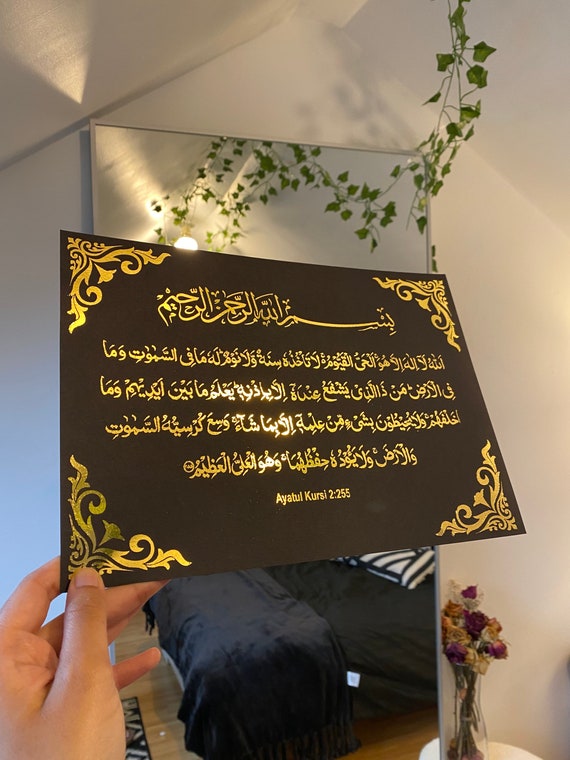 بِسْمِ اللهِ الرَّحْمٰنِ الرَّحِيْمِ
اَللهُ لَآ اِلٰهَ اِلَّا هُوَ ۚ اَلْحَيُّ الْقَيُّوْمُ ۚ لَا تَأْخُذُهٗ سِنَةٌ وَّلَا نَوْمٌ ؕ لَهٗ مَا فِى السَّمٰوٰتِ وَمَا
فِى الْاَرْضِ ؕ مَنْ ذَا الَّذِىْ يَشْفَعُ عِنْدَهٗٓ اِلَّا بِاِذْنِهٖ ؕ يَعْلَمُ مَا بَيْنَ اَيْدِيْهِمْ وَمَا
خَلْفَهُمْ ۚ وَلَا يُحِيْطُوْنَ بِشَىْءٍ مِّنْ عِلْمِهٖٓ اِلَّا بِمَا شَآءَ ۚ وَسِعَ كُرْسِيُّهُ السَّمٰوٰتِ
وَالْاَرْضَ ۚ وَلَا يَـُٔوْدُهٗ حِفْظُهُمَا ۚ وَهُوَ الْعَلِىُّ الْعَظِيْمُ
Ayatul Kursi 2:255